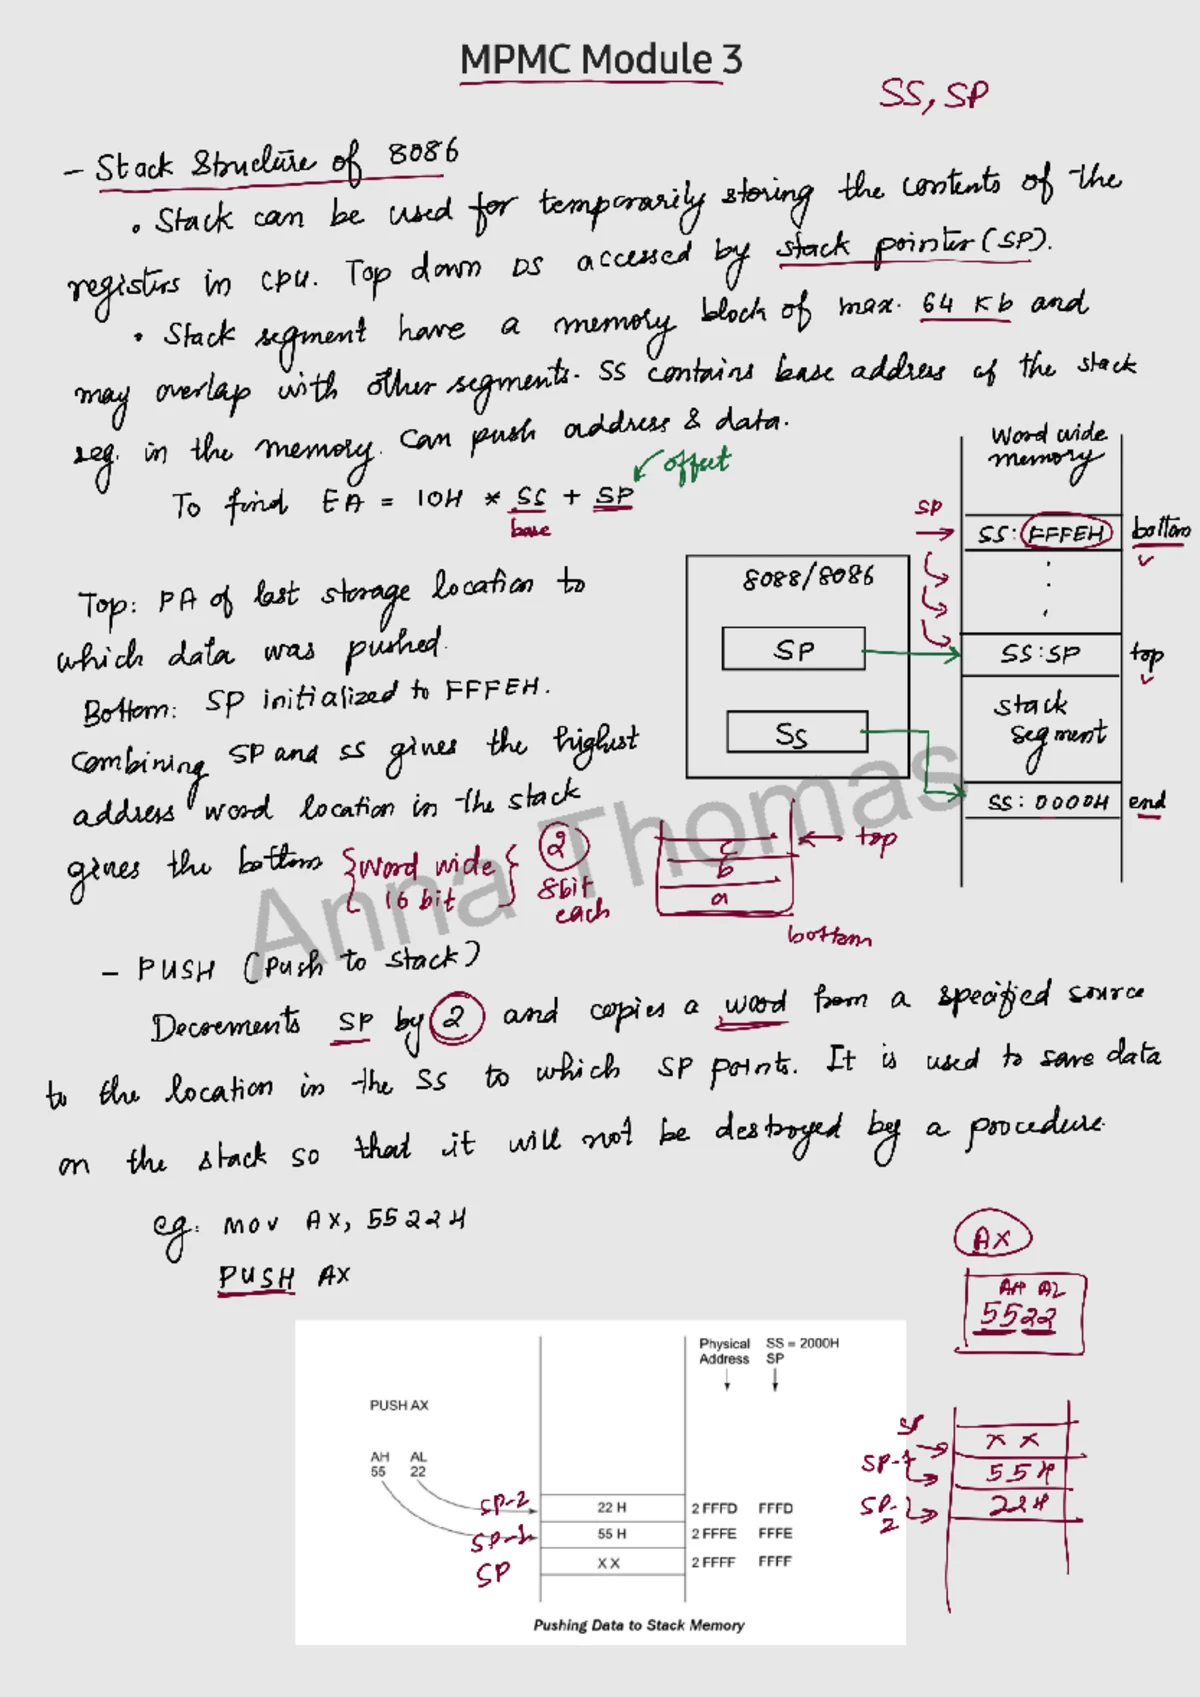 MPMC Module 3
SS, SP
- Stack Structure of 8086
• Stack can be used for temporarily storing the contents of the
registers in CPU. Top down DS accessed by stack pointer (SP).
• Stack segment have a memory block of max. 64 Kb and
may overlap with other segments. SS contains base address of the stack
seg. in the memory. Can push address & data.
offset
To find EA = 10H * SS + SP
base
Word wide
memory
SP
SS: FFFEH bottom
8088/8086
SP
SS:SP top
stack
segment
SS
SS: 0000H end
Top: PA of last storage location to
which data was pushed.
Bottom: SP initialized to FFFEH.
Combining SP and SS gives the highest
address word location in the stack
gives the bottom {Word wide 16 bit} 2 8bit each
c
b
a
top
bottom
Anna Thomas
- PUSH (Push to stack)
Decrements SP by 2 and copies a word from a specified source
to the location in the SS to which SP points. It is used to save data
on the stack so that it will not be destroyed by a procedure.
eg: MOV AX, 5522H
PUSH AX
AX
AH AL
5522
Physical SS = 2000H
Address SP
PUSH AX
AH AL
55 22
SP-2 22 H 2 FFFD FFFD
SP-1 55 H 2 FFFE FFFE
SP X X 2 FFFF FFFF
Pushing Data to Stack Memory
SP X X
SP-1 55H
SP-2 22H